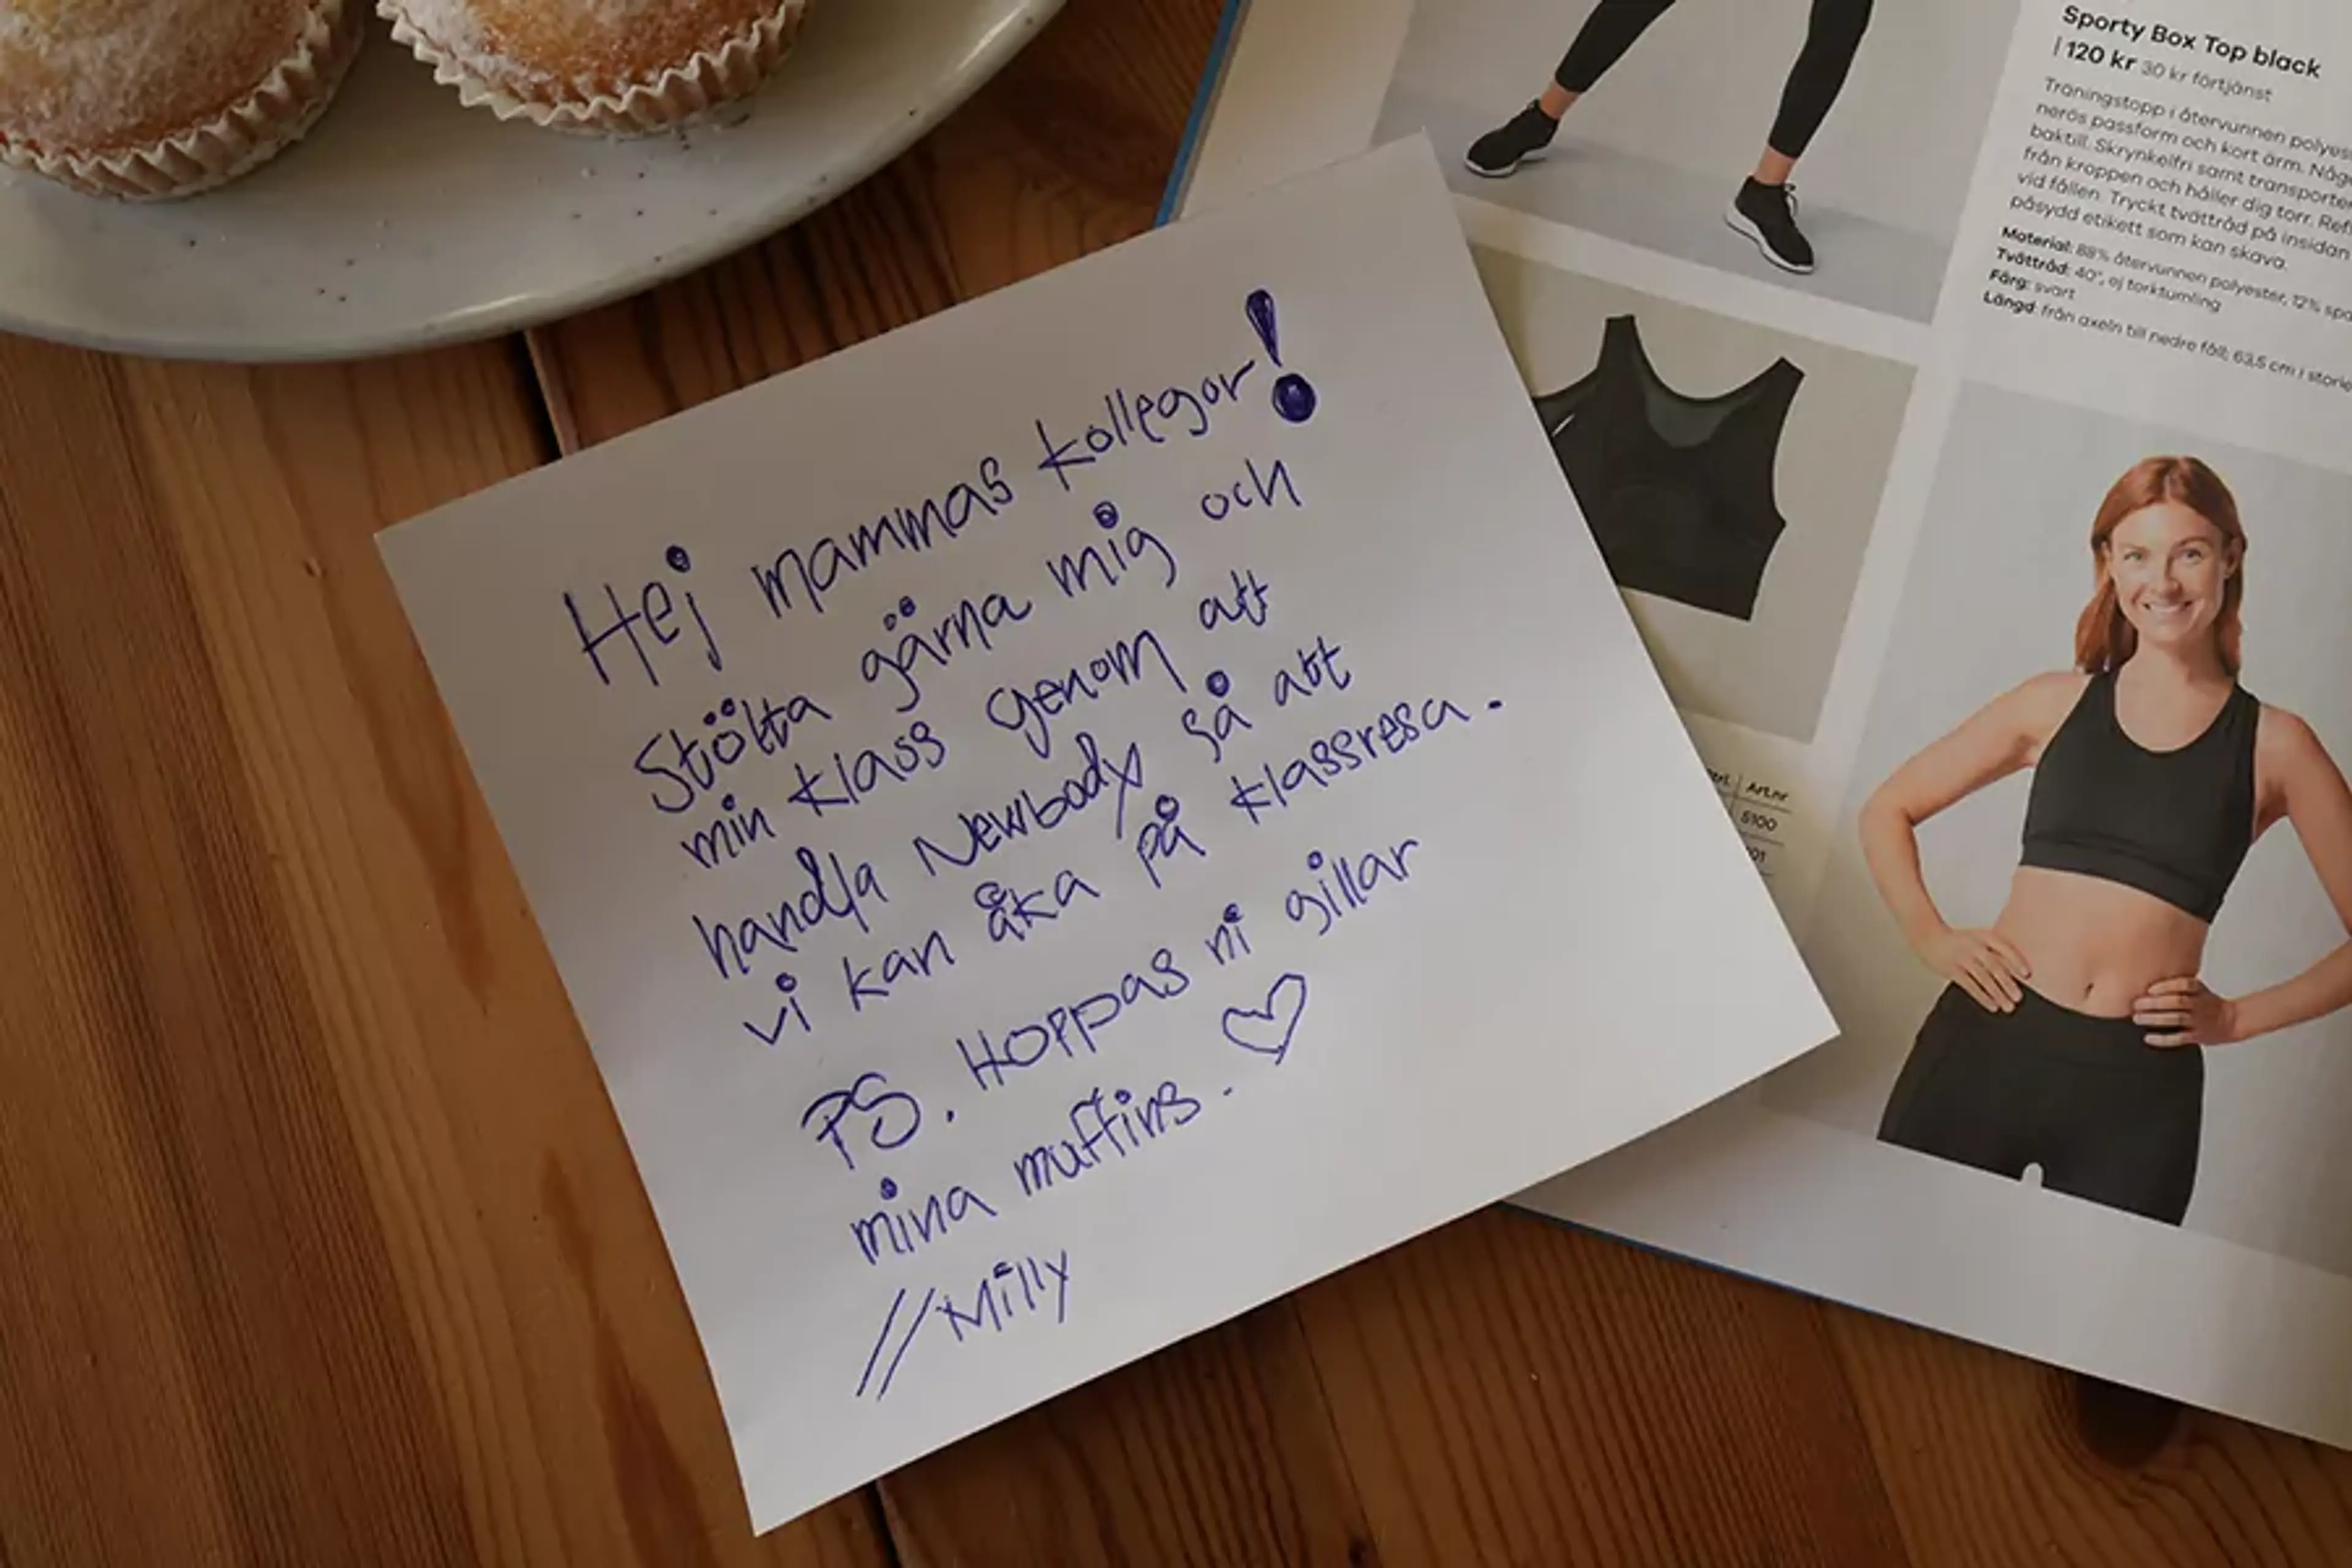 Hej mammas kollegor!
Stötta gärna mig och
min klass genom att
handla Newbody så att
vi kan åka på klassresa.
PS. Hoppas ni gillar
mina muffins. ♡
//Milly
Sporty Box Top black
| 120 kr 30 kr förtjänst
Träningstopp i återvunnen polyes
nerös passform och kort ärm. Någ
baktill. Skrynkelfri samt transporter
från kroppen och håller dig torr. Refl
vid fållen. Tryckt tvättråd på insidan
påsydd etikett som kan skava.
Material: 88% återvunnen polyester, 12% spa
Tvättråd: 40°, ej torktumling
Färg: svart
Längd: från axeln till nedre fåll; 63,5 cm i storle
Art.nr
5100
01